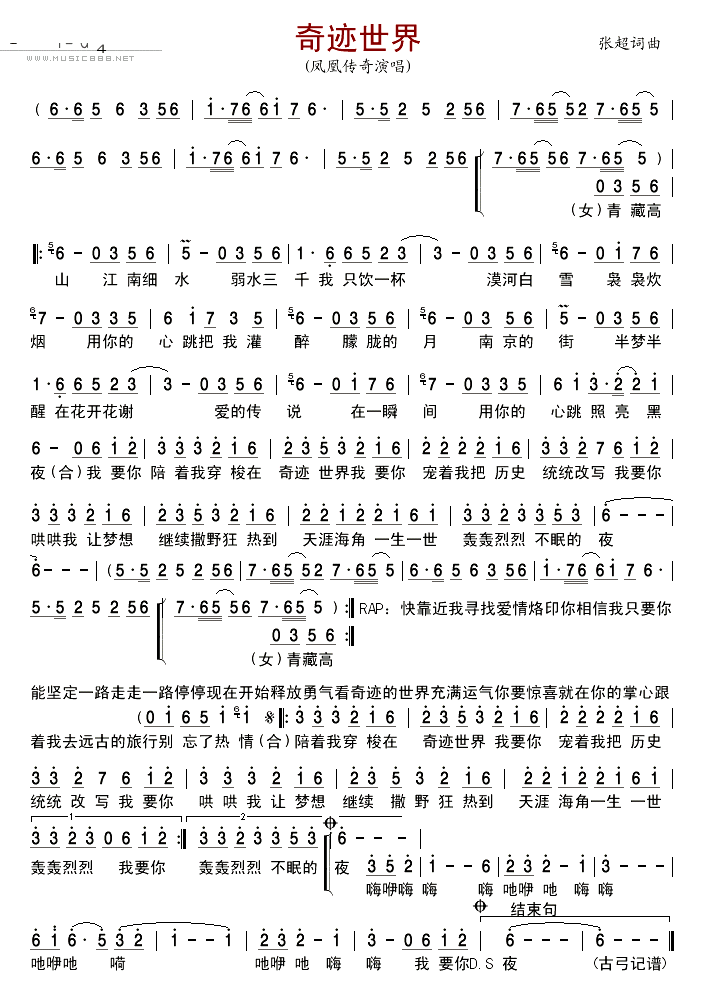 奇迹世界
张超词曲
WWW.MUSIC888.NET
(凤凰传奇演唱)
( 6·6 5 6 3 56 | 1·76 61 7 6· | 5·5 2 5 2 56 | 7·65 52 7·65 5 |
6·6 5 6 3 56 | 1·76 61 7 6· | 5·5 2 5 2 56 | 7·65 56 7·65 5 )
0 3 5 6
(女)青 藏高
6 - 0 3 5 6 | 5 - 0 3 5 6 | 1· 6 6 5 2 3 | 3 - 0 3 5 6 | 6 - 0 1 7 6
山 江 南细 水 弱水三 千 我 只饮一杯 漠河白 雪 袅 袅炊
7 - 0 3 3 5 | 6 1 7 3 5 | 6 - 0 3 5 6 | 7 - 0 3 5 6 | 5 - 0 3 5 6
烟 用你的 心 跳把 我 灌 醉 朦胧的 月 南 京的 街 半梦半
1· 6 6 5 2 3 | 3 - 0 3 5 6 | 6 - 0 1 7 6 | 7 - 0 3 5 6 | 6 1 3· 2 2 1
醒 在花开花谢 爱的传 说 在一瞬 间 用你的 心跳 照 亮 黑
6 - 0 6 1 2 | 3 3 3 2 1 6 | 2 3 5 3 2 1 6 | 3 3 3 2 1 6 | 3 3 2 7 6 1 2
夜(合)我 要你 陪 着我穿 梭在 奇迹 世界我 要你 宠着我把 历史 统统改写 我要你
3 3 3 2 1 6 | 2 3 5 3 2 1 6 | 2 2 1 2 2 1 6 1 | 3 3 2 3 3 5 3 | 6 - - -
哄哄我 让梦想 继续撒野狂 热到 天涯海角 一生一世 轰轰烈烈 不眠的 夜
6 - - - | (5·5 2 5 2 56 | 7·65 52 7·65 5 | 6·6 5 6 3 56 | 1·76 61 7 6·
5·5 2 5 2 56 | 7·65 56 7·65 5 ) :| RAP：快靠近我寻找爱情烙印你相信我只要你
0 3 5 6 :|
(女)青藏高
能坚定一路走走一路停停现在开始释放勇气看奇迹的世界充满运气你要惊喜就在你的掌心跟
(0 1 6 5 1 1 𝄋 |: 3 3 3 2 1 6 | 2 3 5 3 2 1 2 | 3 3 3 2 1 6
着我去远古的旅行别 忘了热 情(合)陪着我穿 梭在 奇迹世界 我要你 宠着我把 历史
3 3 2 7 6 1 2 | 3 3 3 2 1 6 | 2 3 5 3 2 1 6 | 2 2 1 2 2 1 6 1
统统 改 写 我 要你 哄 哄 我 让 梦想 继续 撒 野 狂 热到 天涯 海角一生 一世
1 2
3 3 2 3 0 6 1 2 :| 3 3 2 3 3 5 3 | 6 - - - |
轰轰烈烈 我要你 轰轰烈烈 不眠的 夜
3 5 2 | 1 - - 6 | 2 3 2 - 1 | 1 - - 6 |
嗨咿嗨 嗨 嗨 吔咿 吔 嗨 嗨
结束句
6 1 6· 5 3 2 | 1 - - 1 | 2 3 2 - 1 | 1 - 0 6 1 2 | 6 - - - | 6 - - -
吔咿吔 嗬 吔咿 吔 嗨 嗨 我 要你D.S 夜 (古弓记谱)